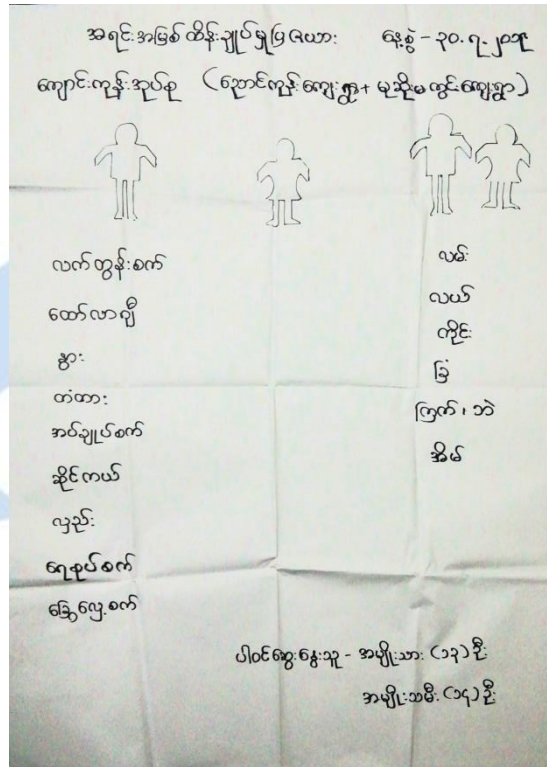 အရင်းအမြစ် ထိန်းချုပ်မှုပြဇယား နေ့စွဲ - ၃၀.၇.၂၀၁၉
ကျောင်းကုန်းအုပ်စု (ညောင်ကုန်းကျေးရွာ + မုဆိုးမကွင်းကျေးရွာ)
လက်တွန်းစက်
ထော်လာဂျီ
နွား
တံတား
အပ်ချုပ်စက်
ဆိုင်ကယ်
လှည်း
ရေစုပ်စက်
ခြွေလှေ့စက်
လမ်း
လယ်
ကိုင်း
ခြံ
ကြက်၊ ဘဲ
အိမ်
ပါဝင်ဆွေးနွေးသူ - အမျိုးသား (၁၃) ဦး
အမျိုးသမီး (၁၄) ဦး